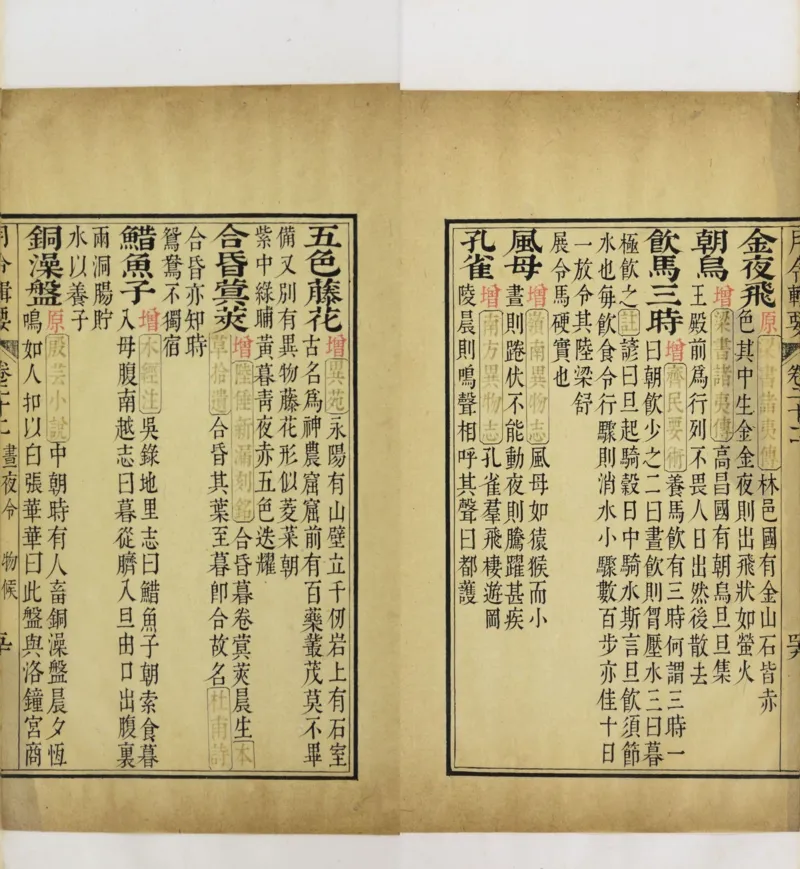 月令輯要 卷二十二
金夜飛
原梁書諸夷傳林邑國有金山石皆赤
色其中生金金夜則出飛狀如螢火
朝烏
增梁書諸夷傳高昌國有朝烏旦旦集
王殿前爲行列不畏人日出然後散去
飲馬三時
增齊民要術養馬飲有三時何謂三時一
曰朝飲少之二曰晝飲則胷壓水三曰暮
極飲之註諺曰旦起騎穀日中騎水斯言旦飲須節
水也每飲食令行驟則消水小驟數百步亦佳十日
一放令其陸梁舒
展令馬硬實也
風母
增嶺南異物志風母如猿猴而小
晝則踡伏不能動夜則騰躍甚疾
孔雀
增南方異物志孔雀羣飛棲遊岡
陵晨則鳴聲相呼其聲曰都護
五色藤花
增異苑永陽有山壁立千仞岩上有石室
古名爲神農窟窟前有百藥叢茂莫不畢
備又別有異物藤花形似菱菜朝
紫中綠晡黃暮青夜赤五色迭耀
合昏蓂莢
增陸倕新漏刻銘合昏暮卷蓂莢晨生本
草拾遺合昏其葉至暮卽合故名杜甫詩
合昏亦知時
鴛鴦不獨宿
鯌魚子
增水經注吳錄地里志曰鯌魚子朝索食暮
入母腹南越志曰暮從臍入旦由口出腹裏
兩洞腸貯
水以養子
銅澡盤
原殷芸小說中朝時有人畜銅澡盤晨夕恆
鳴如人扣以白張華華曰此盤與洛鐘宮商
月令輯要 卷二十二 晝夜令 物候